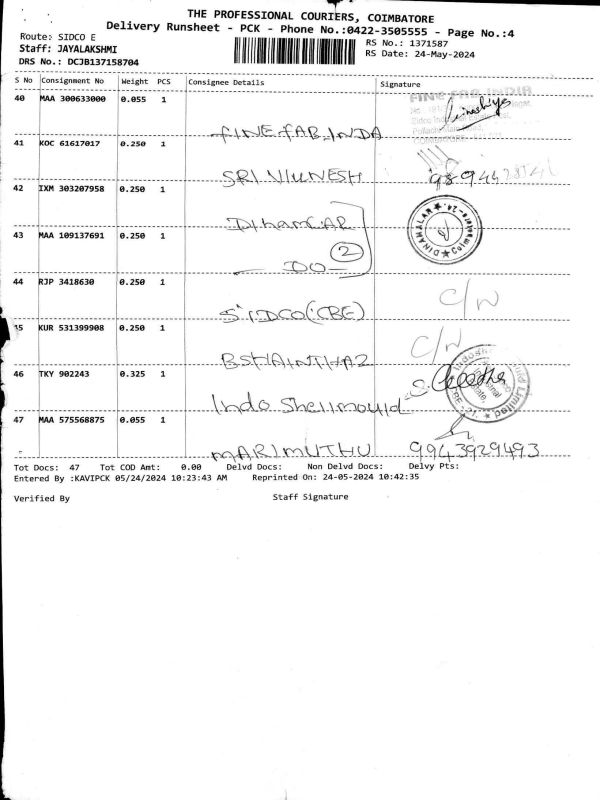 THE PROFESSIONAL COURIERS, COIMBATORE
Delivery Runsheet - PCK - Phone No.:0422-3505555 - Page No.:4
Route: SIDCO E
RS No.: 1371587
Staff: JAYALAKSHMI
RS Date: 24-May-2024
DRS No.: DCJB137158704
S No Consignment No Weight PCS Consignee Details Signature
40 MAA 300633000 0.055 1
FINE FAB INDIA
FINE FAB INDA
41 KOC 61617017 0.250 1
SRI VIGNESH
42 IXM 303207958 0.250 1
DINAMALAR
43 MAA 109137691 0.250 1
2
DO
DINAMALAR ★ Coimbatore-24. ★
44 RJP 3418630 0.250 1
SIDCO (CBE) C/N
45 KUR 531399908 0.250 1
C/N
46 TKY 902243 0.325 1
Indo Shellmould
47 MAA 575568875 0.055 1
MARIMUTHU 9943929493
Tot Docs: 47 Tot COD Amt: 0.00 Delvd Docs: Non Delvd Docs: Delvy Pts:
Entered By :KAVIPCK 05/24/2024 10:23:43 AM Reprinted On: 24-05-2024 10:42:35
Verified By Staff Signature